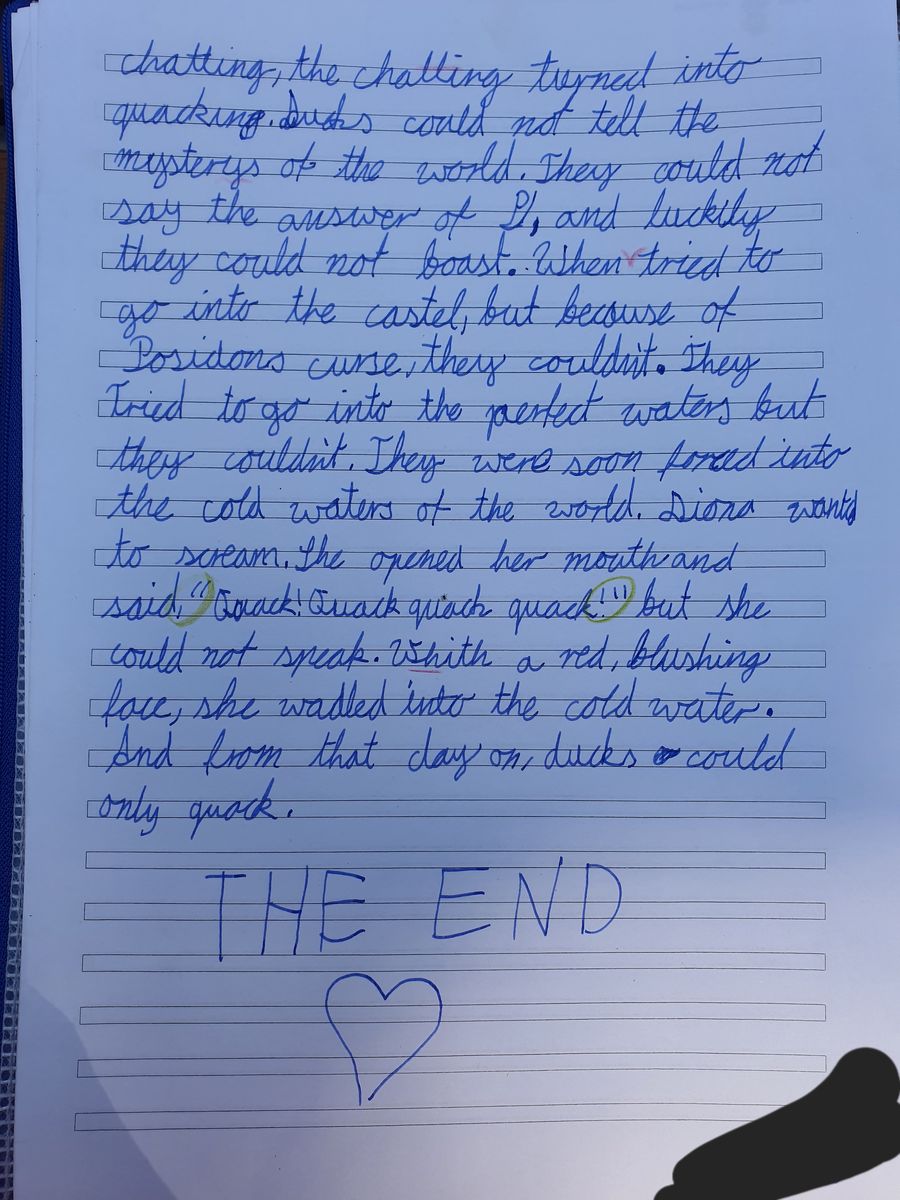 chatting, the chatting turned into
quacking. Ducks could not tell the
mysterys of the world. They could not
say the answer of PI, and luckily
they could not boast. When tried to
go into the castel, but because of
Posidons curse, they couldn't. They
Tried to go into the perfect waters but
they couldn't. They were soon forced into
the cold waters of the world. Diona wants
to scream. She opened her mouth and
said, "Quack! Quack quack quack!" but she
could not speak. Whith a red, blushing
face, she wadled into the cold water.
And from that day on, ducks could
only quack.
THE END